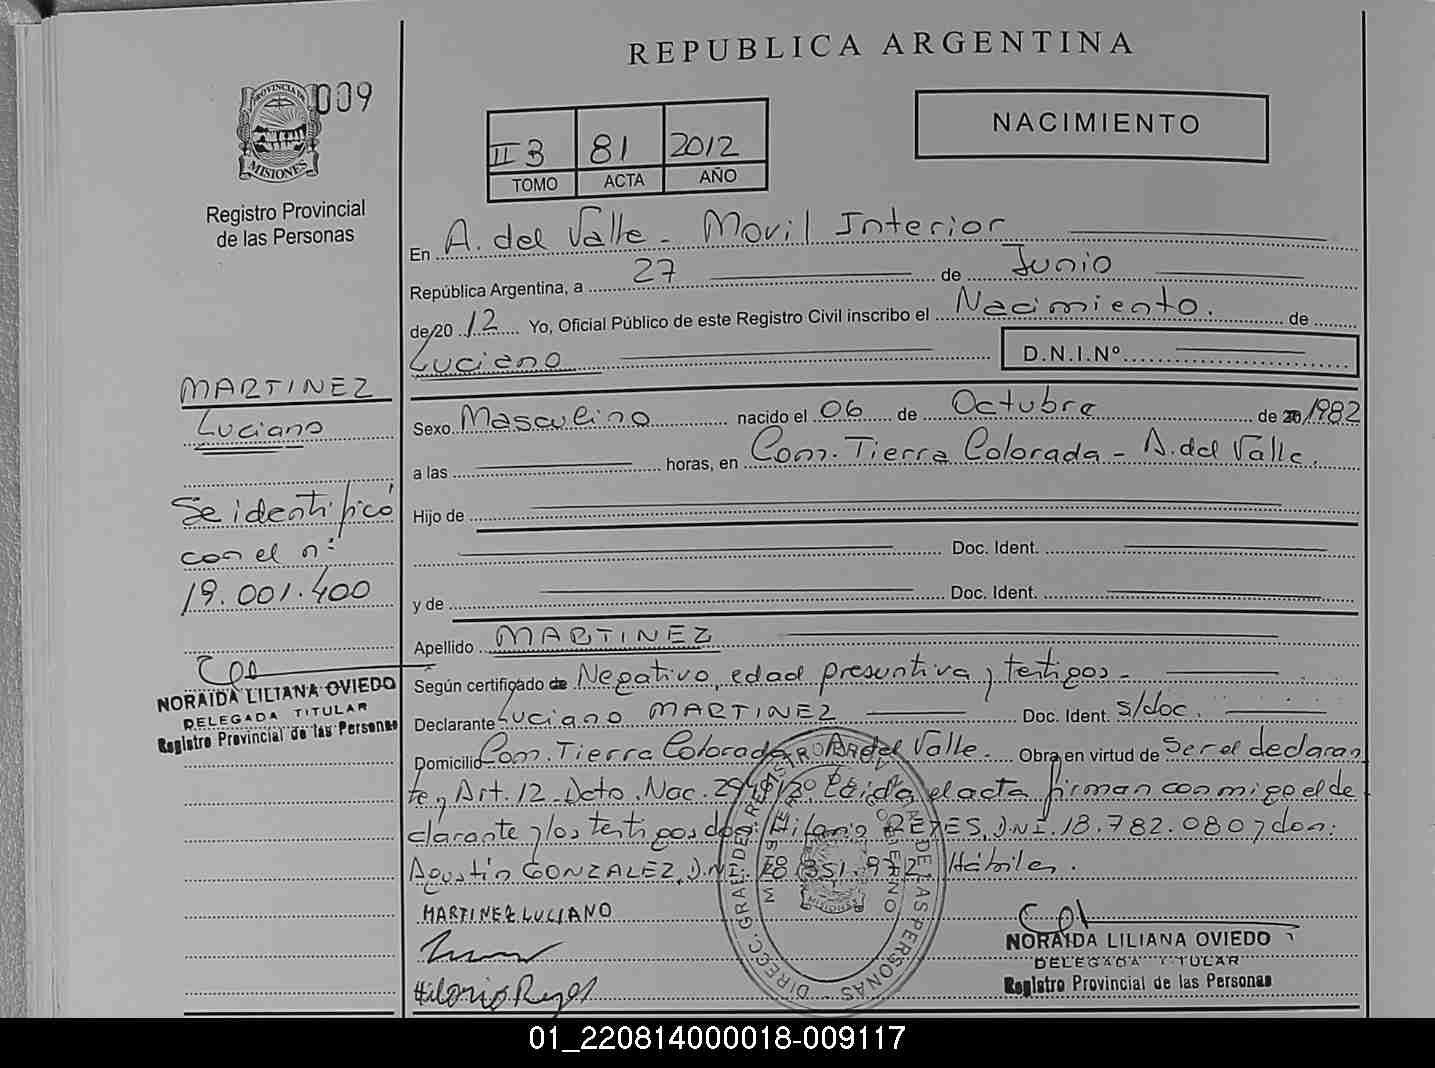 REPUBLICA ARGENTINA
PROVINCIA DE
MISIONES
009
Registro Provincial
de las Personas
II 3 81 2012
TOMO ACTA AÑO
NACIMIENTO
En A. del Valle - Movil Interior
República Argentina, a 27 de Junio
de 20 12 Yo, Oficial Público de este Registro Civil inscribo el Nacimiento. de
Luciano D.N.I.Nº
MARTINEZ
Luciano
Se identificó
con el n:
19.001.400
NORAIDA LILIANA OVIEDO
DELEGADA TITULAR
Registro Provincial de las Personas
Sexo Masculino nacido el 06 de Octubre de 20 1982
a las horas, en Com. Tierra Colorada - A. del Valle.
Hijo de
Doc. Ident.
y de Doc. Ident.
Apellido MARTINEZ
Según certificado de Negativo, edad presuntiva y testigos -
Declarante Luciano MARTINEZ Doc. Ident. s/doc.
Domicilio Com. Tierra Colorada A. del Valle. Obra en virtud de Ser el declaran
te y Art. 12 Dcto. Nac. 294/12 Leida el acta firman conmigo el de
clarante y los testigos don: Hilario REYES, D.N.I. 18.782.080 y don:
Agustín GONZALEZ, D.N.I. 851.972 Hábiles.
MARTINEZ LUCIANO
Hilario Reyes
NORAIDA LILIANA OVIEDO
DELEGADA TITULAR
Registro Provincial de las Personas
DIRECC. GRAL. DEL REGISTRO PROV. DE LAS PERSONAS
MISIONES
01_220814000018-009117